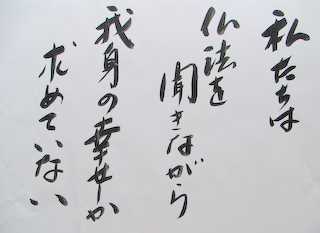 私たちは
仏法を
聞きながら
我身の幸せしか
求めていない